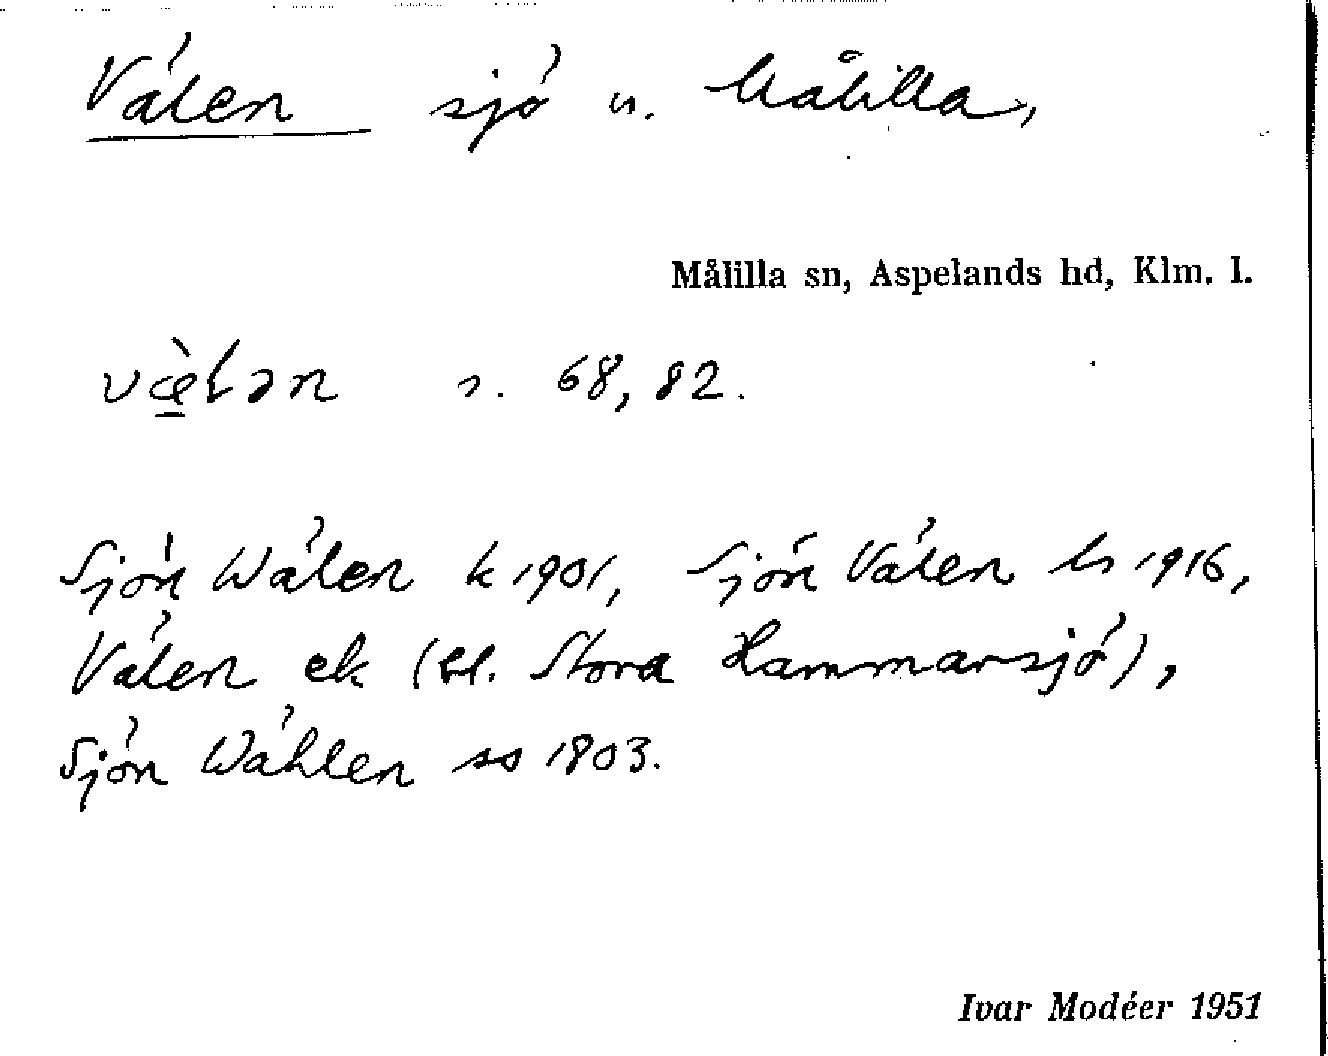 Välen sjö n. Målilla,
Målilla sn, Aspelands hd, Klm. l.
væ̀lən s. 68, 82.
Sjön Wälen k 1901, Sjön Välen 1916,
Välen ek (bl. Stora Hammarsjö),
Sjön Wählen so 1803.
Ivar Modéer 1951